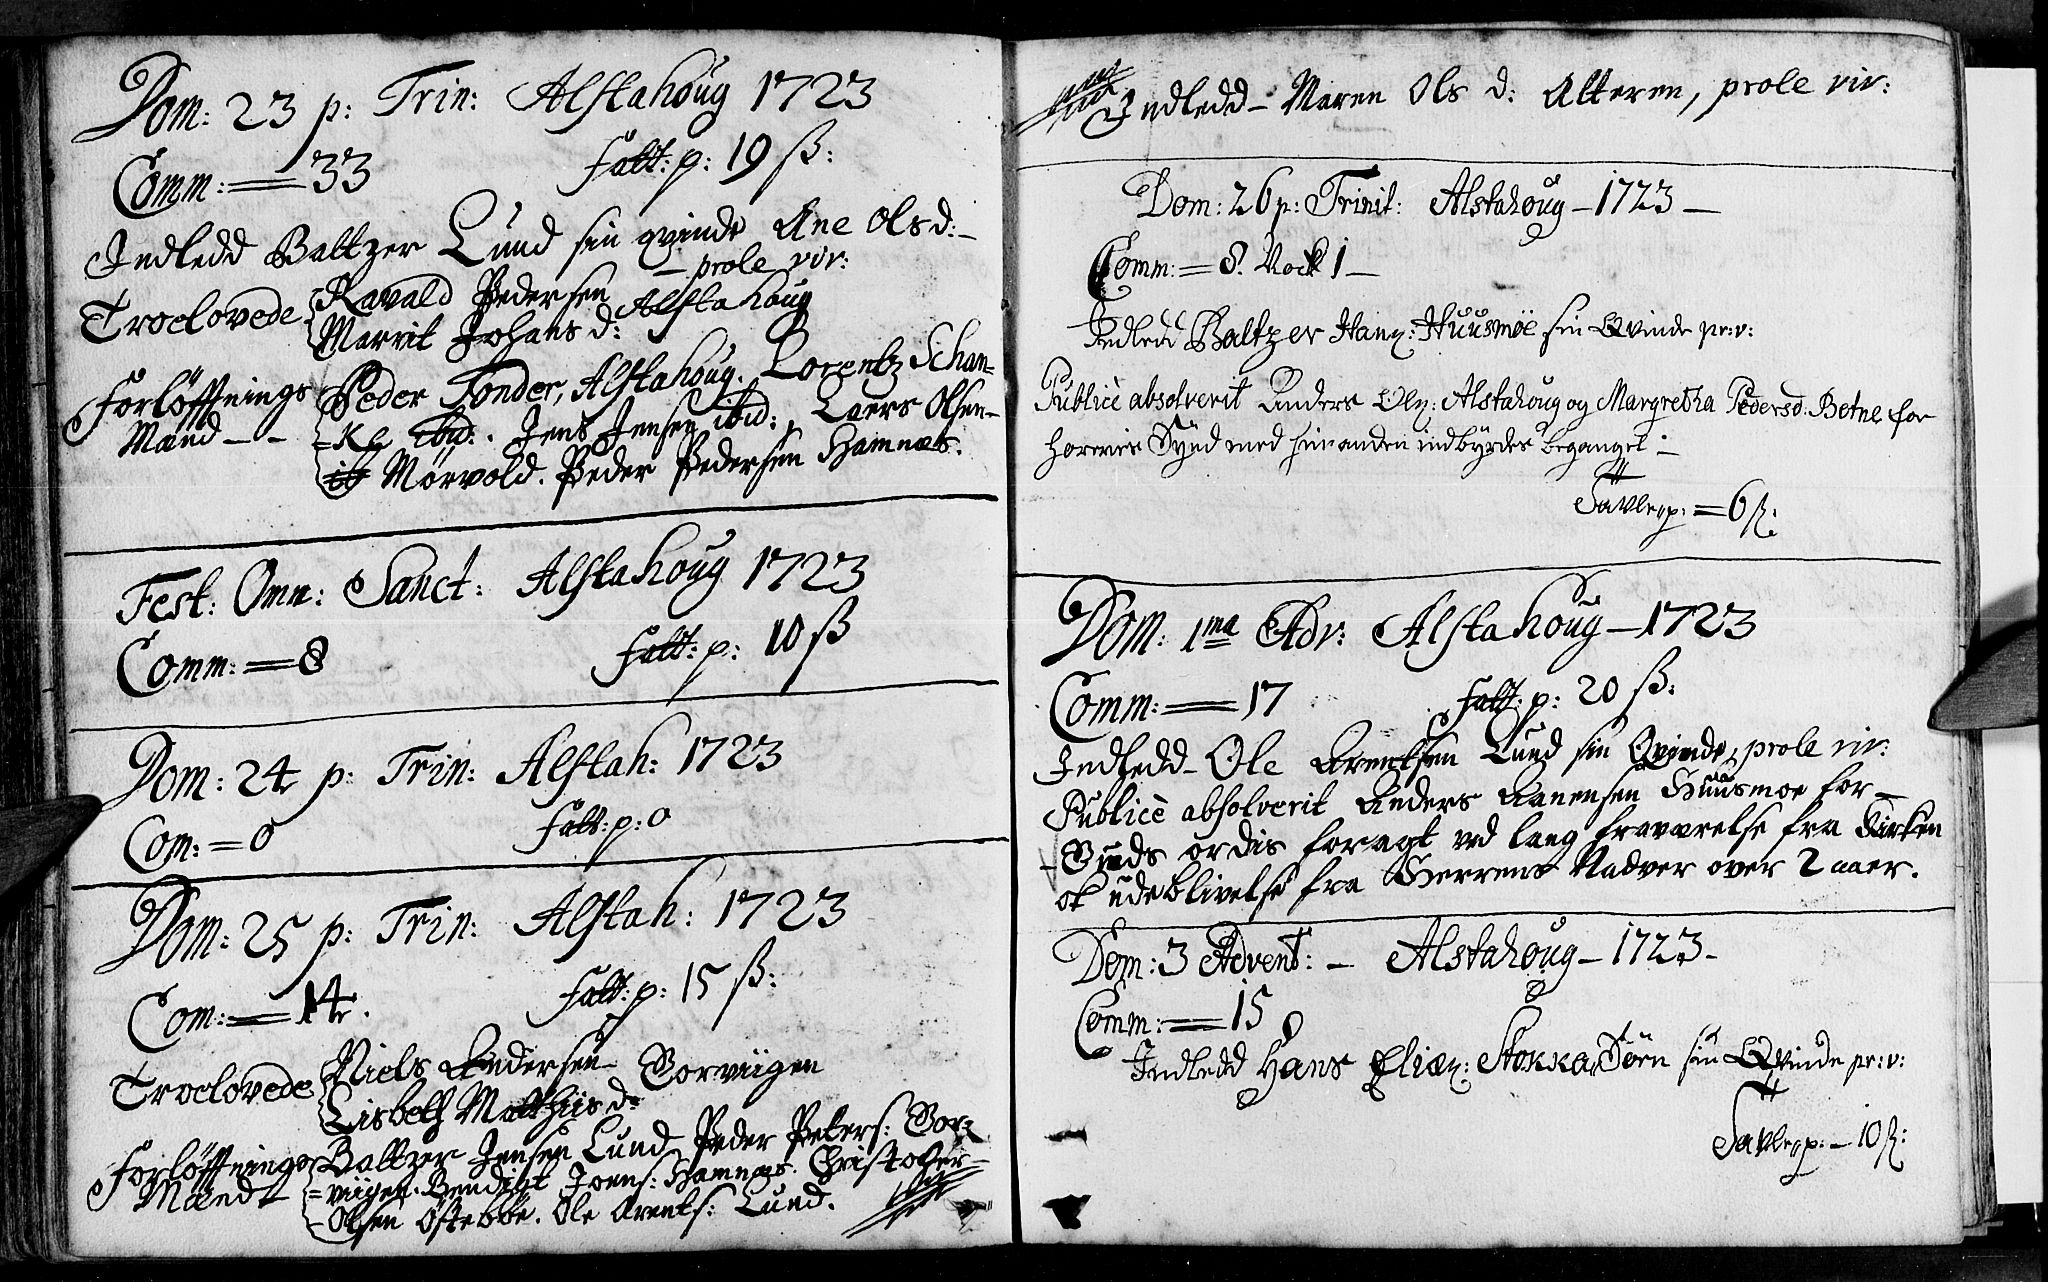 Dom: 23 p: Trin: Alstahoug 1723
Comm: = 33 Fatt: p: 19 ß:
Indledd Baltzer Lund sin qvinde Ane Ols d: –
– prole vir:
Troelovede Ravald Pedersen
Marrit Johans d: Alstahoug
Forløffnings Peder Tønder, Alstahoug. Lorentz Schan=
Mænd – - =ke ibid: . Jens Jensen ibid: , Laers Olsen –
Mørvold. Peder Pedersen Hamnæs.
Fest: Omn: Sanct: Alstahoug 1723
Comm: = 8 Fatt: p: 10 ß
Dom: 24 p: Trin: Alstah: 1723
Com: = 0 Fatt: p: 0
Dom: 25 p: Trin: Alstah: 1723
Com: = 14. Fatt: p: 15 ß:
Troelovede Niels Andersen Sorviigen
Lisbeth Matthiis d:
Forløffnings Baltzer Jensen Lund Peder Peters: Sor=
Mænd =viigen. Bendigt Joens: Hamnæs. Christopher
Olsen Østebøe. Ole Arents: Lund.
Indledd – Maren Ols d: Alteren, prole vir:
Dom: 26 p: Trinit: Alstahoug – 1723 –
Comm: = 8. Vock 1 –
Indledd Baltzer Hanz: Huusmoe sin Qvinde pr: v:
Publicè absolverit Anders Olz: Alstahoug og Margretha Pedersd: Betne for
horeries Synd med hinanden indbyrdes beganget: –
Tavle p: = 6 ß:
Dom: 1ma Adv: Alstahoug – 1723
Comm: = 17 Fatt: p: 20 ß:
Indledd – Ole Arentsen Lund sin Qvinde, prole vir:
Publicè absolverit Anders Aanensen Huusmoe for –
– Guds ordis foragt ved lang fraværelse fra Kirken
ok udeblivelse fra Herrens Nadver over 2 aaer.
Dom: 3 Advent: – Alstahoug – 1723 –
Comm: = 15
Indledd Hans Eliæz: Stokka Tørn sin Qvinde pr: v:
Tavle p: – 10 ß: